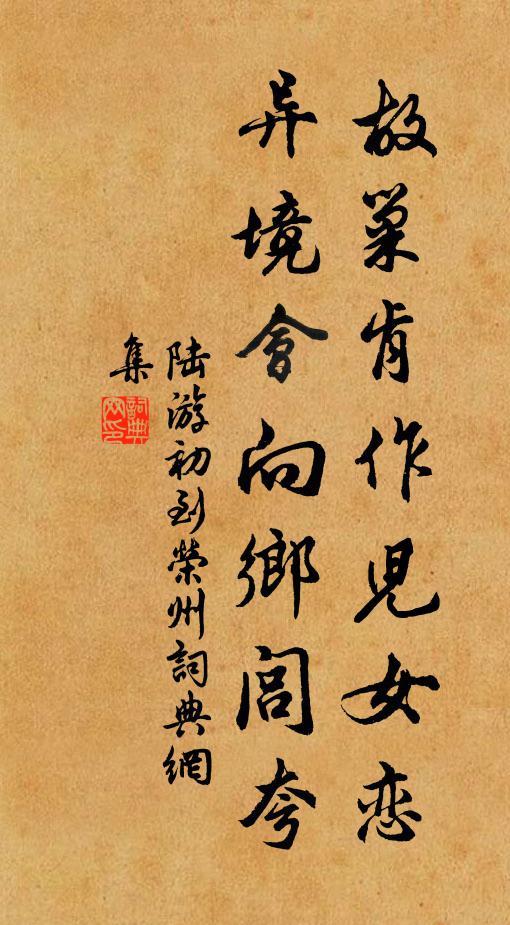 故巢肯作児女恋
异境會向鄉閭夸
陆游初到榮州詞典網
集
詞典网印